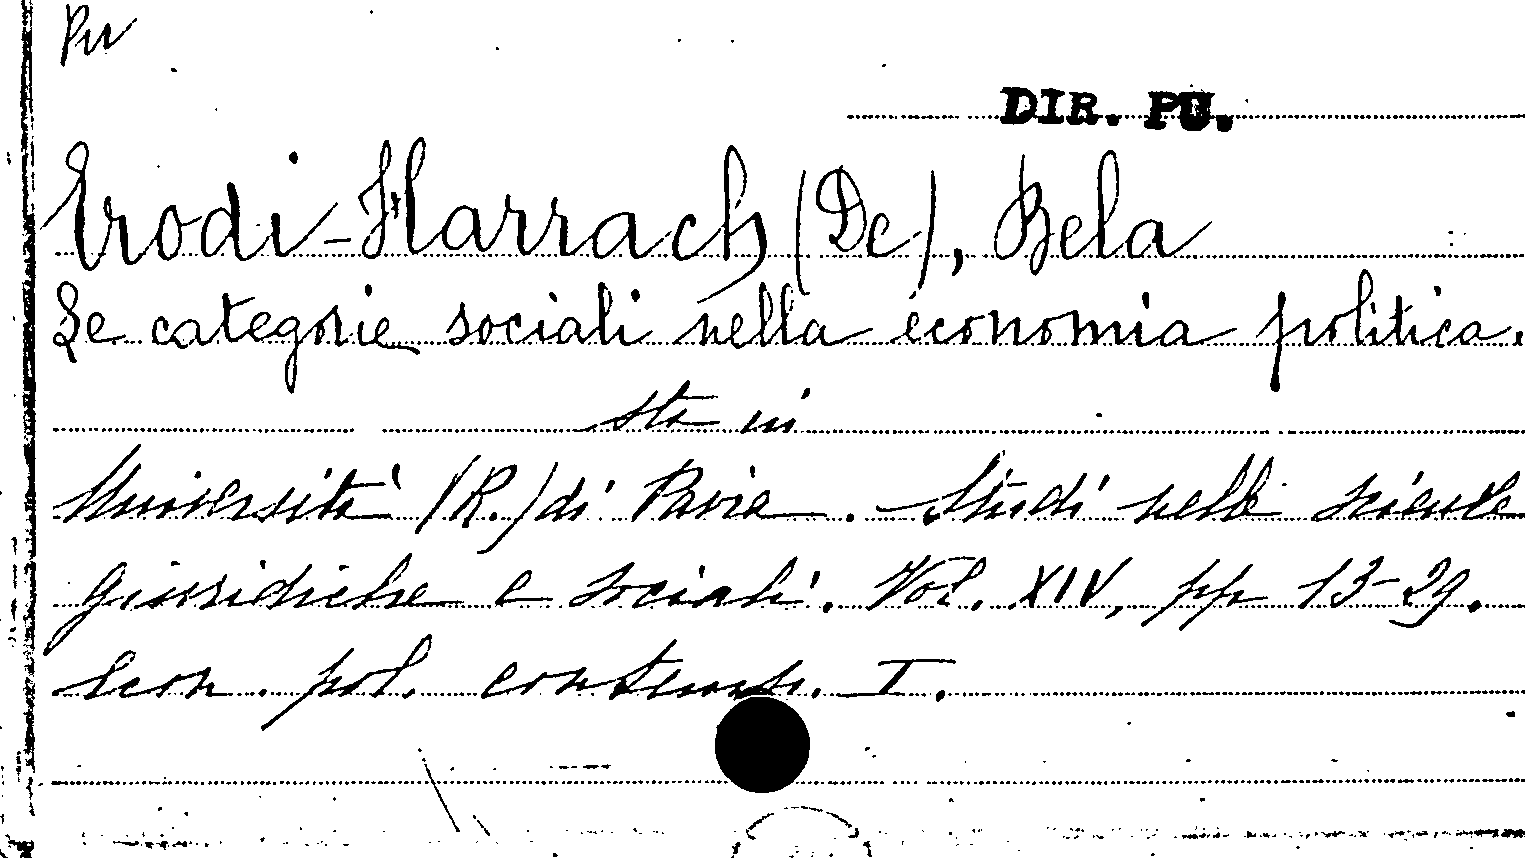 Pu
DIR. PU.
Erodi-Harrach (De), Bela
Le categorie sociali nella economia politica.
sta in
Università (R.) di Pavia. Studi nelle scienze
giuridiche e sociali. Vol. XIV, pp 13-29.
Econ. pol. contemp. I.